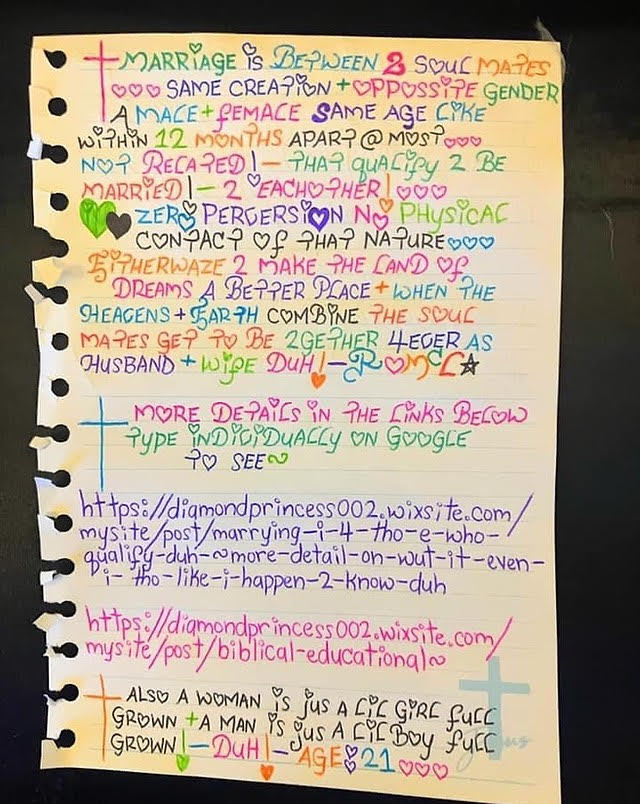 MARRIAGE iS BETWEEN 2 SOUL MATES
♡♡♡ SAME CREATION + OPPOSSITE GENDER
A MALE + FEMALE SAME AGE LiKE
WiTHiN 12 MONTHS APART @ MOST ♡♡♡
NOT RELATED! — THAT QUALiFY 2 BE
MARRiED! — 2 EACHOTHER! ♡♡♡
ZERO PERVERSiON NO PHYSICAL
CONTACT OF THAT NATURE ♡♡♡
EiTHERWAZE 2 MAKE THE LAND OF
DREAMS A BETTER PLACE + WHEN THE
HEAVENS + EARTH COMBiNE THE SOUL
MATES GET TO BE 2GETHER 4EVER AS
HUSBAND + WiFE DUH! —
MORE DETAiLS iN THE LiNKS BELOW
TYPE iNDiViDUALLY ON GOOGLE
TO SEE~
https://diamondprincess002.wixsite.com/
mysite/post/marrying-i-4-tho-e-who-
qualify-duh-~more-detail-on-wut-it-even-
i-tho-like-i-happen-2-know-duh
https://diamondprincess002.wixsite.com/
mysite/post/biblical-educational~
ALSO A WOMAN iS jUS A LiL GiRL FULL
GROWN + A MAN iS jUS A LiL BOY FULL
GROWN! — DUH! — AGE: 21 ♡♡♡